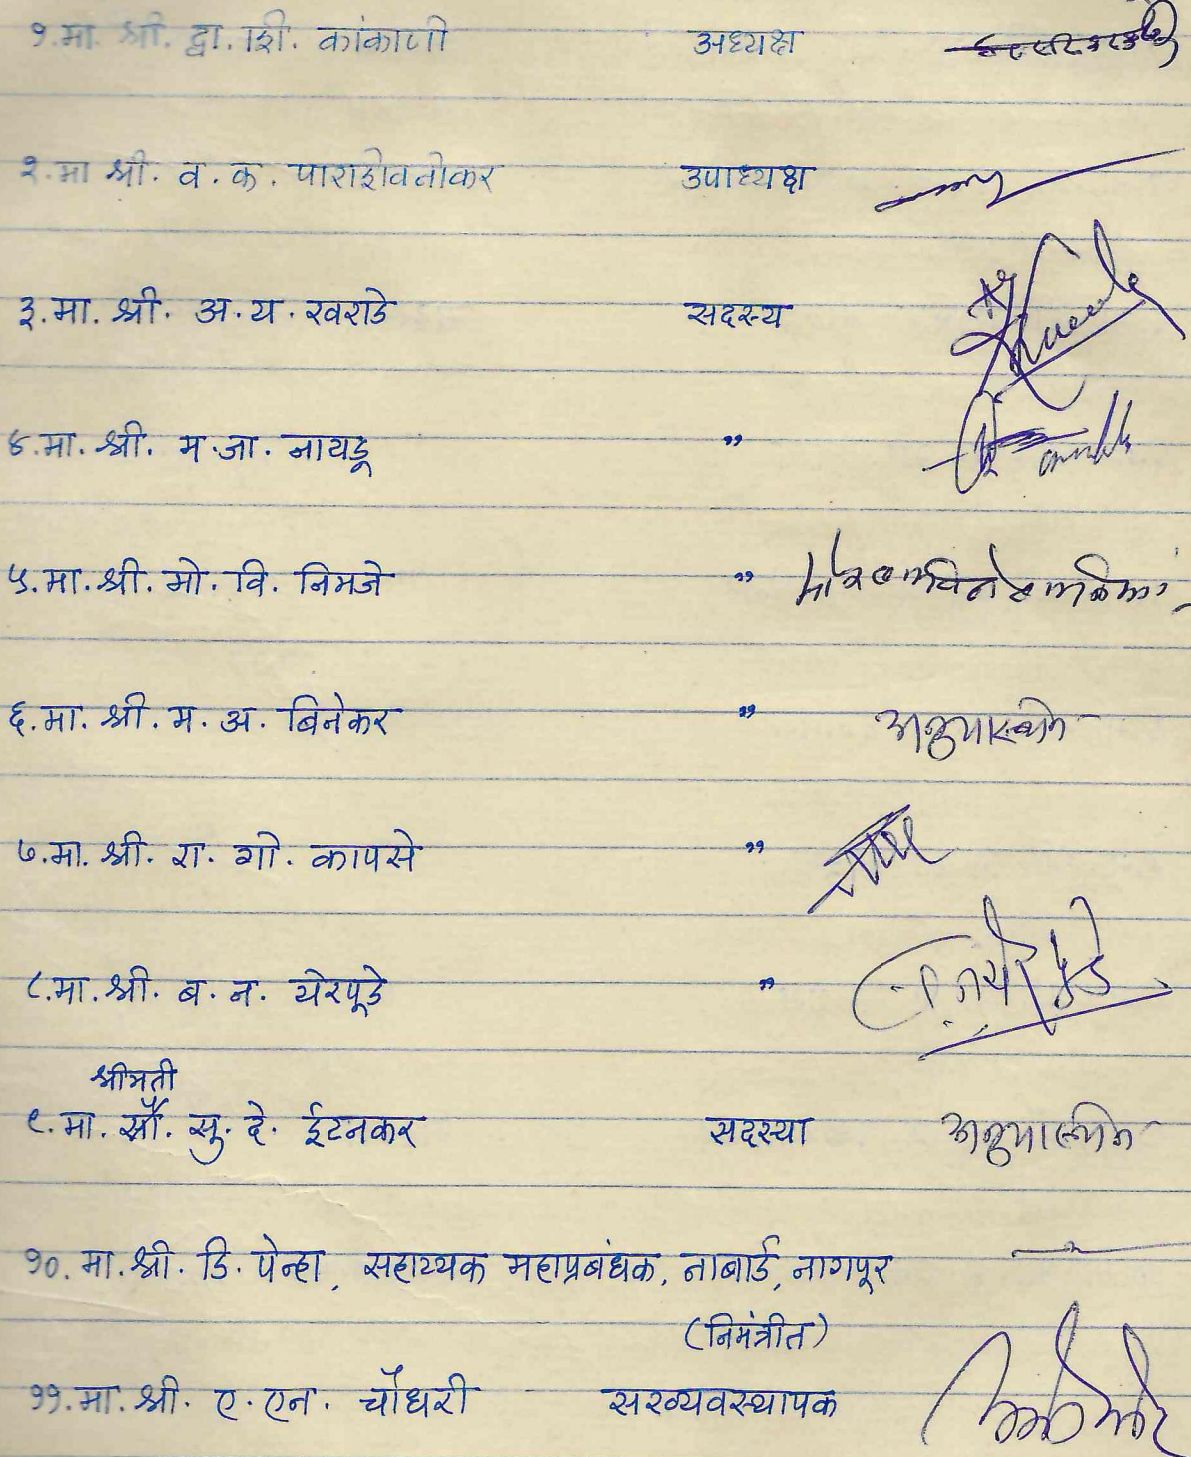 १. मा. श्री. द्वा. शि. कांकाणी अध्यक्ष
२. मा श्री. व. क. पाराशेवतीकर उपाध्यक्ष
३. मा. श्री. अ. य. खराडे सदस्य
४. मा. श्री. म. जा. नायडू ”
५. मा. श्री. मो. वि. निमजे ”
६. मा. श्री. म. अ. बिनेकर ” अनुपस्थित
७. मा. श्री. रा. गो. कापसे ”
८. मा. श्री. ब. न. येरपूडे ”
श्रीमती
९. मा. सौ. सु. दे. ईटनकर सदस्या अनुपस्थित
१०. मा. श्री. डि. पेन्हा, सहाय्यक महाप्रबंधक, नाबार्ड, नागपूर
(निमंत्रीत)
११. मा. श्री. ए. एन. चौधरी सरव्यवस्थापक